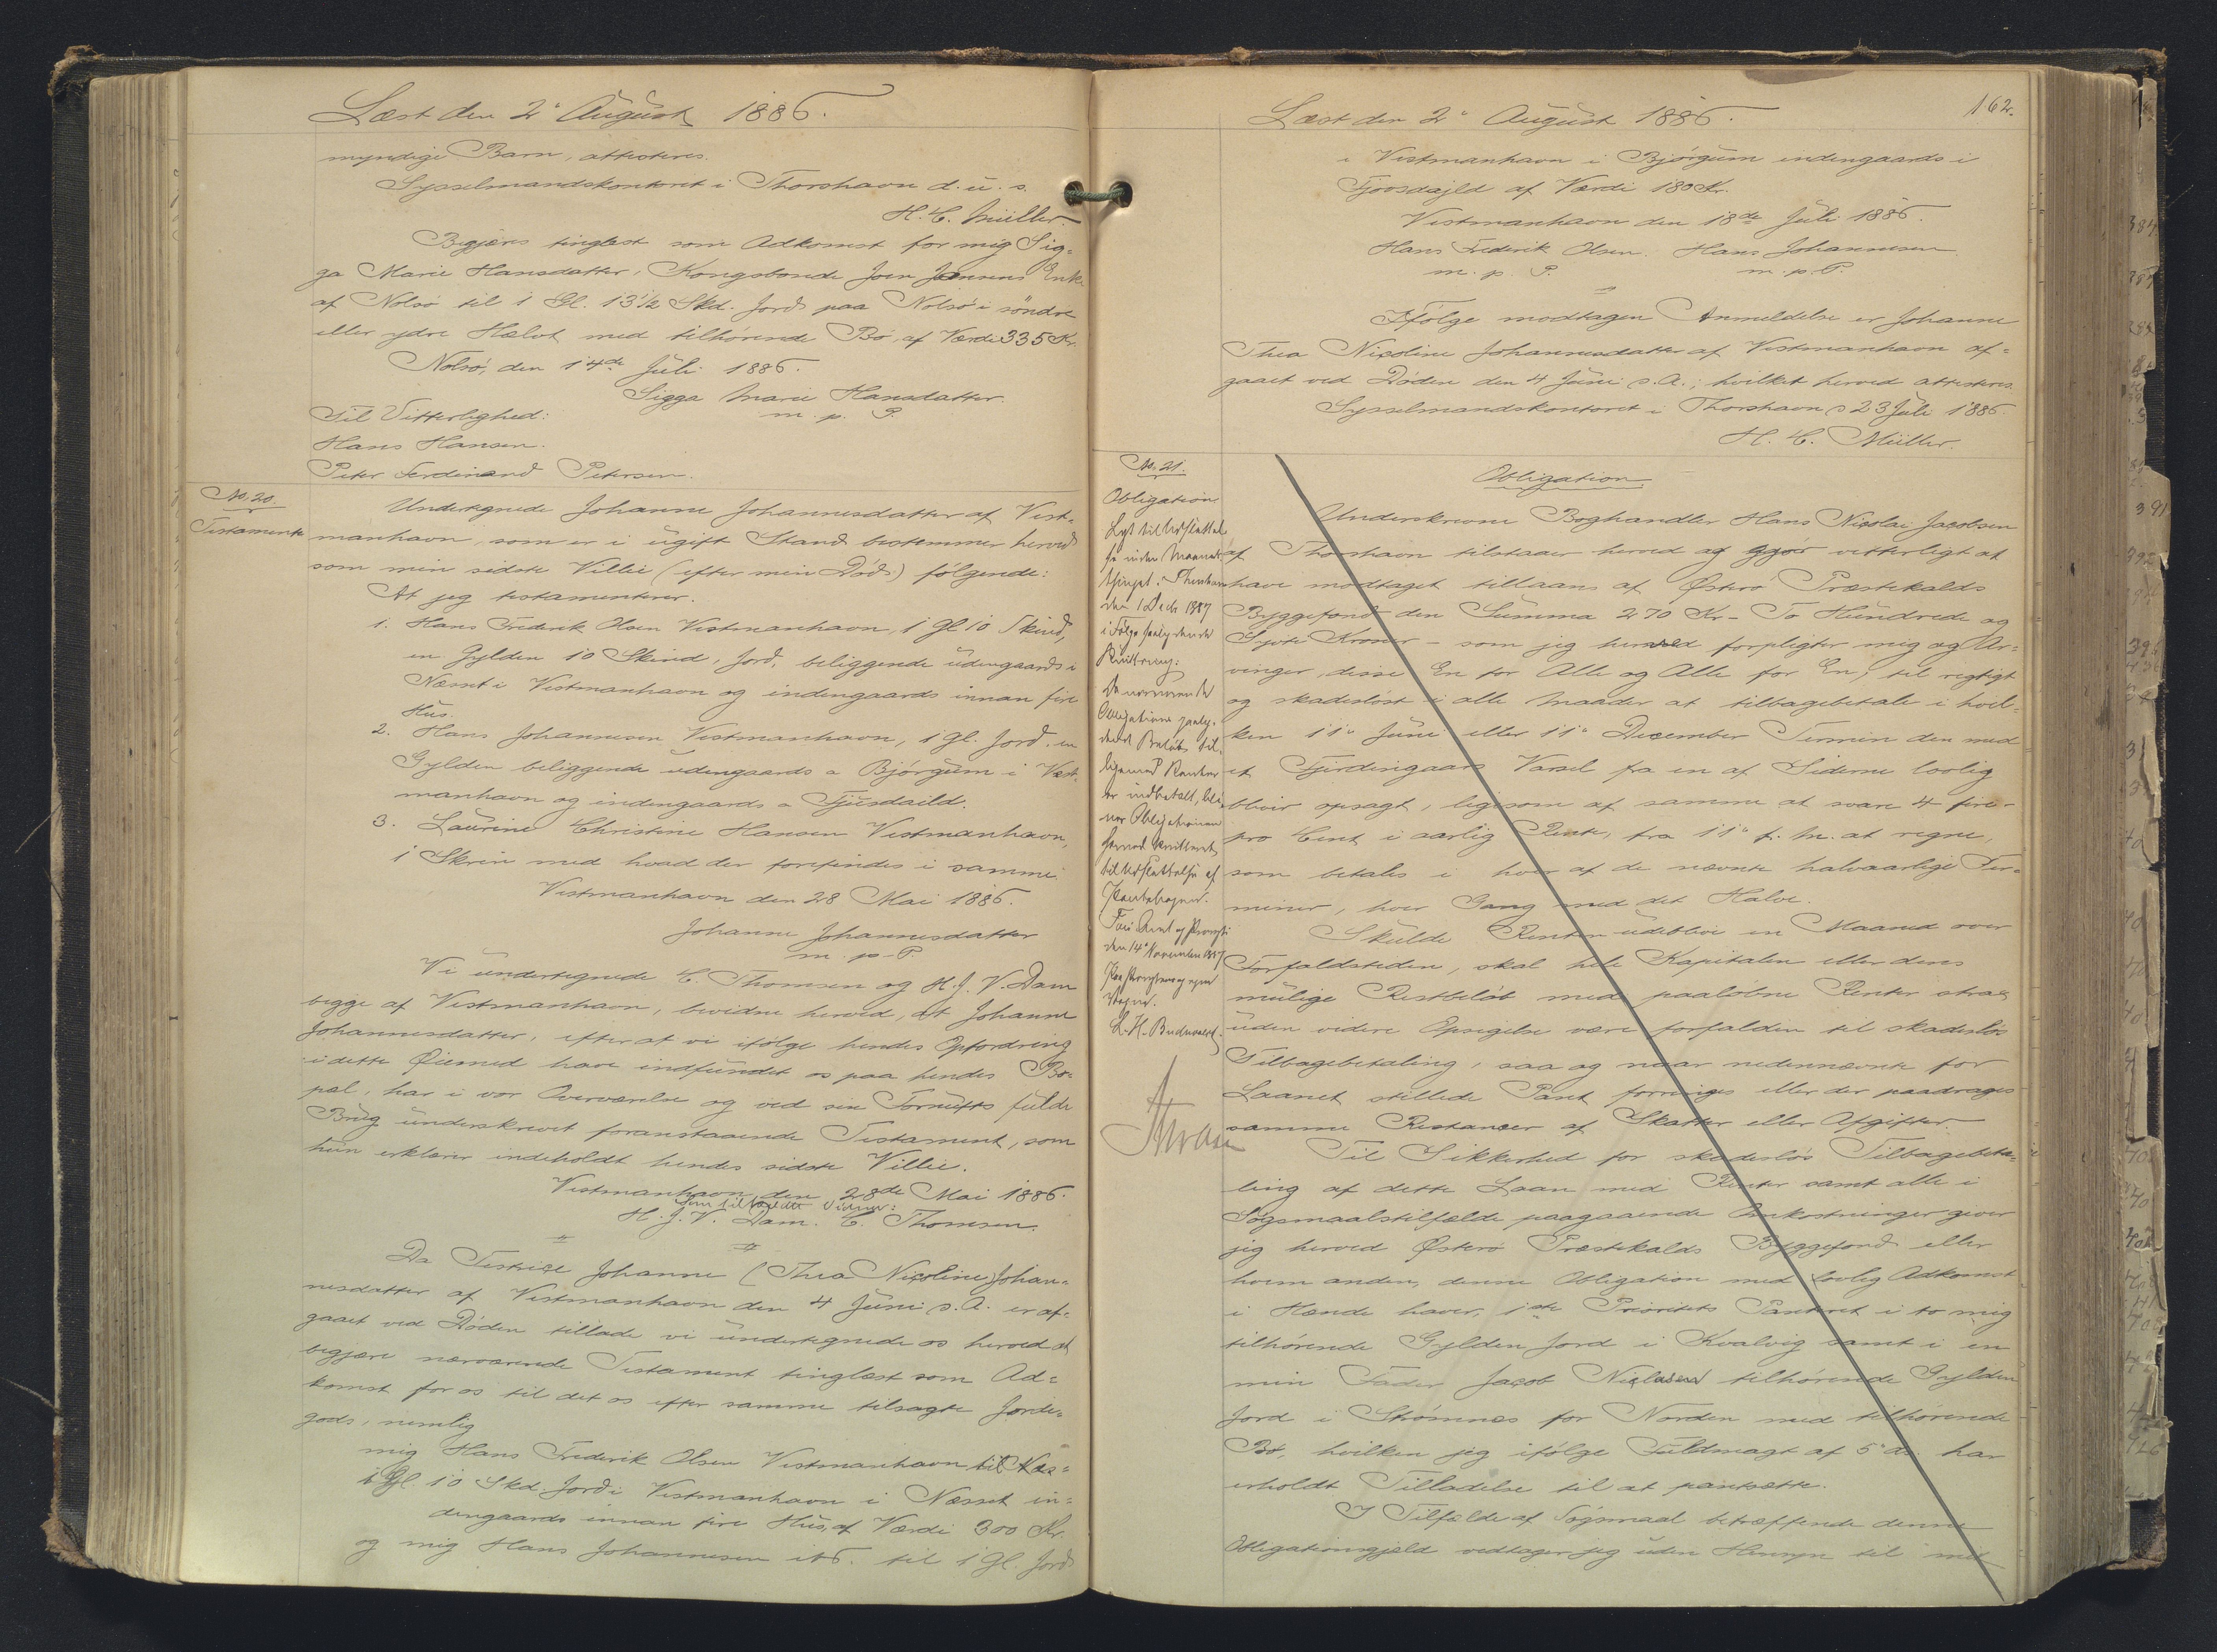 Læst den 2' August 1886.
myndige Barn, attesteres.
Sysselmandskontoret i Thorshavn d. u. s.
H. C. Müller
Begjæres tinglæst som Adkomst for mig Sig-
ga Marie Hansdatter, Kongsbonde Joen Joensens Enke
af Nolsö til 1 Gl. 13 1/2 Skd. Jord paa Nolsö i söndre
eller ydre Hælvt med tilhörende Bö, af Værdi 335 Kr.
Nolsö, den 14de Juli 1886.
Sigga Marie Hansdatter.
m. p. P.
Til Vitterlighed:
Hans Hansen.
Peter Ferdinand Petersen.
No. 20.
Testamente
Undertegnede Johanne Johannesdatter af Vest-
manhavn, som er i ugift Stand bestemmer herved
som min sidste Villie (efter min Död) fölgende:
At jeg testamenterer.
1. Hans Frederik Olsen Vestmanhavn, 1 Gl 10 Skind,
en Gylden 10 Skind, Jord, beliggende udengaards i
Næsset i Vestmanhavn og indengaards innan fire
Hus.
2. Hans Johannesen Vestmanhavn, 1 Gl. Jord. en
Gylden beliggende udengaards a Bjórgum i Vest-
manhavn og indengaards a Tjusdaild.
3. Laurine Christine Hansen Vestmanhavn,
1 Skrin med hvad der forefindes i samme.
Vestmanhavn den 28 Mai 1886.
Johanne Johannesdatter
m. p. P.
Vi undertegnede C. Thomsen og H. J. V. Dam
begge af Vestmanhavn, bevidne herved, at Johanne
Johannesdatter, efter at vi ifölge hendes Opfordring
i dette Øiemed have indfundet os paa hendes Bo-
pæl, har i vor Overværelse og ved sin Fornufts fulde
Brug underskrevet foranstaaende Testament, som
hun erklærer indeholdt hendes sidste Villie.
Vestmanhavn den 28de Mai 1886.
som tilkaldte Vidner:
H. J. V. Dam. C. Thomsen.
Da Testrice Johanne (Thea Nicoline) Johan-
nesdatter af Vestmanhavn den 4 Juni d. A. er af-
gaaet ved Döden tillade vi undertegnede os herved at
begjære nærværende Testament tinglæst som Ad-
komst for os til det os efter samme tilsagte Jorde-
gods, nemlig
mig Hans Frederik Olsen Vestmanhavn til
1 Gl 10 Skd. Jord i Vestmanhavn i Næsset in-
dengaards innan fire Hus, af Værdi 300 Kr.
og mig Hans Johannesen ibd. til 1 Gl. Jord
162.
Læst den 2' August 1886.
i Vestmanhavn i Bjórgum indengaards i
Tjoosdajld af Værdi 180 Kr.
Vestmanhavn den 18de Juli 1886.
Hans Frederik Olsen. Hans Johannesen
m. p. P. m. p. P.
Ifölge modtagen Anmeldelse er Johanne
Thea Nicoline Johannesdatter af Vestmanhavn af-
gaaet ved Döden den 4 Juni d. A.; hvilket herved attesteres.
Sysselmandskontoret i Thorshavn d 23 Juli 1886.
H. C. Müller.
No. 21.
Obligation
Lyst til Udslettel-
se inden Maaneds-
thinget i Thorshavn
den 1 Decbr 1887
i Følge saalydende
Kvittering:
Da nærværende
Obligations paaly-
dende Beløb til-
ligemed Renter
er indbetalt, bli-
ver Obligationen
herved kvitteret
til Udslettelse af
Pantebogen.
Færø Amt og Provsti
den 14' November 1887
Paa Provstens og egne
Vegne.
L. H. Buchwaldt.
Obligation
Underskrevne Boghandler Hans Nicolai Jacobsen
af Thorshavn tilstaaer herved og gjör vitterligt at
have modtaget tillaans af Österö Præstekalds
Byggefond den Summa 270 Kr. - To Hundrede og
Syvti Kroner - som jeg herved forpligter mig og Ar-
vinger, disse En for Alle og Alle for En, til rigtigt
og skadeslöst i alle Maader at tilbagebetale i hvil-
ken 11' Juni eller 11' December Termin den med
et Fjerdingaars Varsel fra en af Siderne lovlig
bliver opsagt, ligesom af samme at svare 4 fire-
pro Cent i aarlig Rente, fra 11' f. M. at regne,
som betales i hver af de nævnte halvaarlige Ter-
miner, hver Gang med det Halve.
Skulde Renten udeblive en Maaned over
Forfaldstiden, skal hele Kapitalen eller dens
mulige Restbelöb med paalöbne Renter strax
uden videre Opsigelse være forfalden til skadeslös
Tilbagebetaling, saa og naar nedennævnte for
Laanet stillede Pant forringes eller der paadrages
samme Restancer af Skatter eller Afgifter.
Til Sikkerhed for skadeslös Tilbagebeta-
ling af dette Laan med Renter samt alle i
Sögsmaalstilfælde paagaaende Omkostninger giver
jeg herved Østerö Præstekalds Byggefond eller
hvem anden, denne Obligation med lovlig Adkomst
i Hænde haver, 1ste Prioritets Panteret i to mig
tilhörende Gylden Jord i Kvalvig samt i en
min Fader Jacob Niclasen tilhörende Gylden
Jord i Strömnæs for Norden med tilhörende
Bö, hvilken jeg ifölge Fuldmagt af 5' ds. har
erholdt Tilladelse til at pantsætte.
I Tilfælde af Sögsmaal betræffende denne
Obligationsgjæld vedtager jeg uden Hensyn til mit